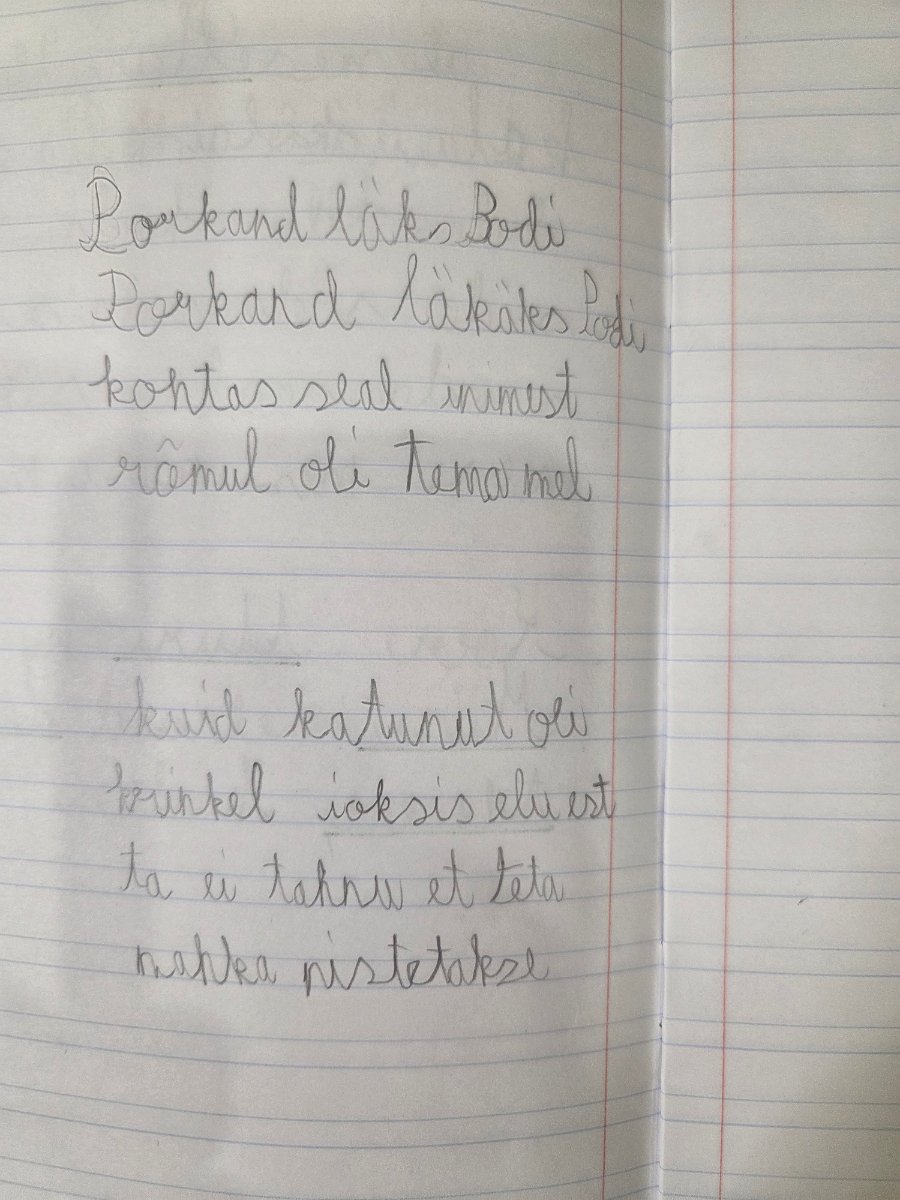 Porkand läks Bodi
Porkand läkäks Podi
kohtas seal inimest
rõmul oli tema mel
kuid katunut oli
krinkel ioksis eluest
ta ei tahnu et teta
nahka pistetakse